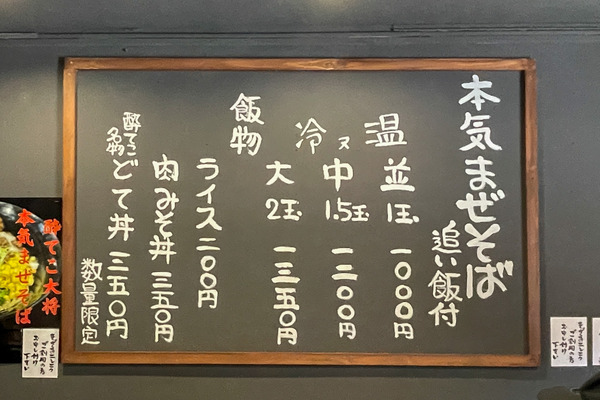 本気まぜそば
追い飯付
温 又 冷
並 1玉 一〇〇〇円
中 1.5玉 一二〇〇円
大 2玉 一三五〇円
飯物
ライス 二〇〇円
肉みそ丼 三五〇円
酔てこ名物
どて丼 三五〇円
数量限定
酔てこ大将
本気まぜそば